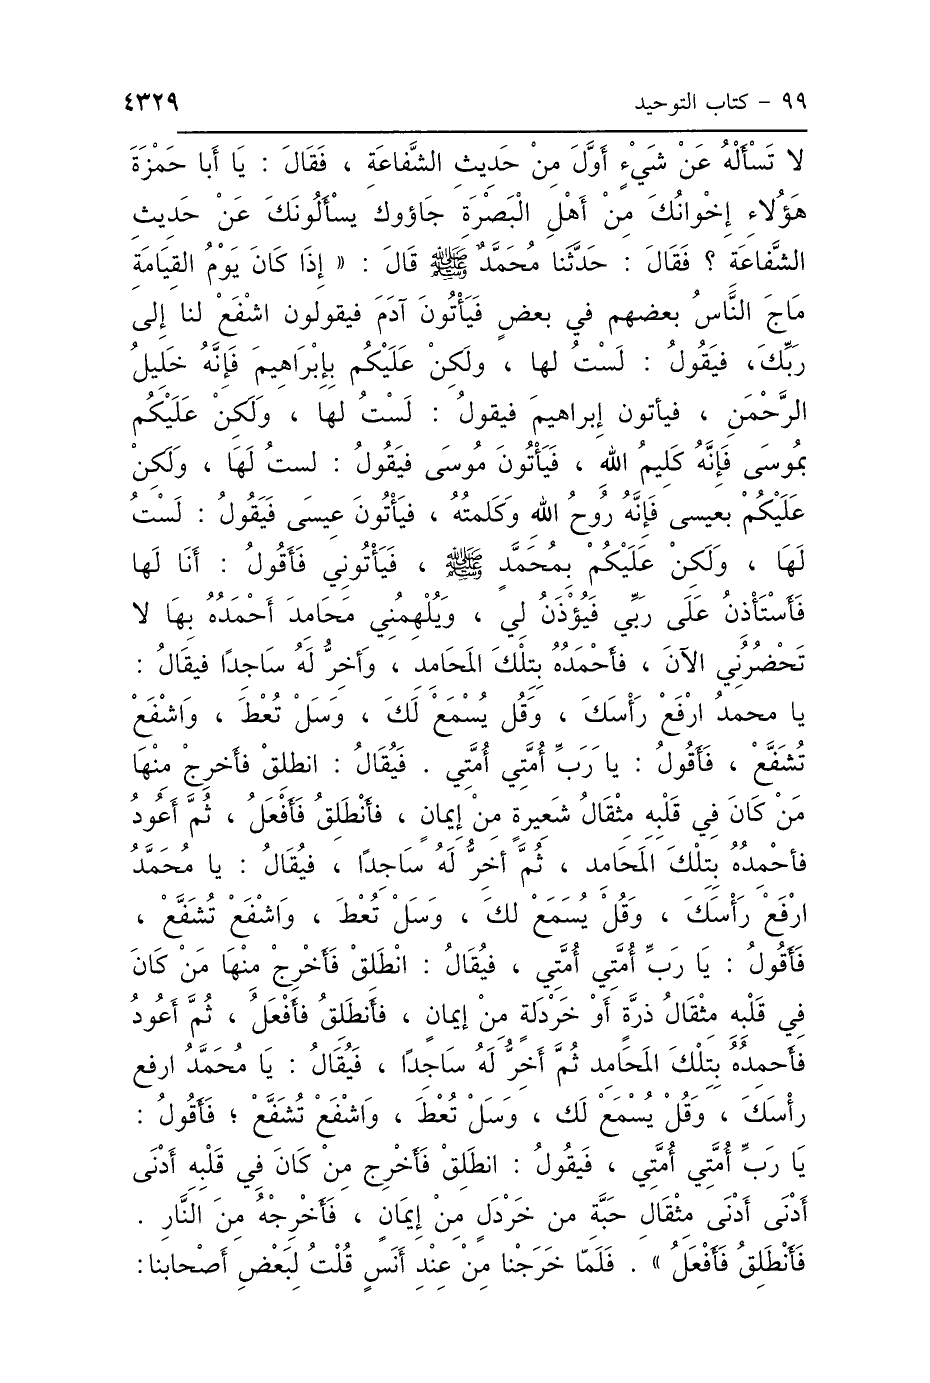 ٩٩ - كتاب التوحيد ٤٣٢٩
لا تَسْأَلْهُ عَنْ شَيْءٍ أَوَّلَ مِنْ حَديثِ الشَّفاعَةِ ، فَقَالَ : يَا أَبا حَمْزَةَ
هَؤُلاءِ إخْوانُكَ مِنْ أَهْلِ الْبَصْرَةِ جَاؤوك يسْأَلُونَكَ عَنْ حَدِيثِ
الشَّفاعَةِ ؟ فَقَالَ : حَدَّثَنا مُحَمَّدٌ ﷺ قَالَ : « إذَا كَانَ يَوْمُ القِيامَةِ
مَاجَ النَّاسُ بعضهم في بعضٍ فَيَأْتُونَ آدَمَ فيقولون اشْفَعْ لنا إلى
رَبِّكَ، فيَقُولُ : لَسْتُ لها ، ولَكنْ عَلَيْكُم بِإبْرَاهِيمَ فَإنَّهُ خَلِيلُ
الرَّحْمَنِ ، فيأتون إبراهيمَ فيقولُ : لَسْتُ لها ، وَلَكنْ عَلَيْكُم
بمُوسَى فَإنَّهُ كَلِيمُ اللهِ ، فَيَأْتُونَ مُوسَى فيَقُولُ : لستُ لَهَا ، ولَكِنْ
عَلَيْكُمْ بعيسى فَإنَّهُ رُوحُ اللهِ وكَلمتُهُ ، فيَأْتُونَ عِيسَى فَيَقُولُ : لَسْتُ
لَهَا ، وَلَكنْ عَلَيْكُمْ بِمُحَمَّدٍ ﷺ ، فَيَأْتُوني فَأَقُولُ : أَنَا لَها
فَأَسْتَأْذنُ عَلَى رَبِّي فَيُؤْذَنُ لِي ، ويُلْهِمُني مَحَامدَ أَحْمَدُهُ بِهَا لا
تَحْضُرُني الآنَ ، فأَحْمَدُهُ بتلْكَ المَحامِدِ ، وَأَخرُّ لَهُ سَاجدًا فيقَالُ :
يا محمدُ ارْفَعْ رَأْسَكَ ، وَقُل يُسْمَعْ لَكَ ، وَسَلْ تُعْطَ ، وَاشْفَعْ
تُشَفَّعْ ، فَأَقُولُ : يا رَبِّ أُمَّتي أُمَّتي . فَيُقَالُ : انطلقْ فأَخرِجْ مِنْهَا
مَنْ كَانَ فِي قَلْبِهِ مثْقَالُ شَعِيرةٍ مِنْ إيمانٍ ، فأَنْطَلقُ فَأَفْعَلُ ، ثُمَّ أَعُودُ
فأحْمدُهُ بِتلْكَ المَحامِدِ ، ثُمَّ أَخرُّ لَهُ سَاجدًا ، فيُقَالُ : يا مُحَمَّدُ
ارْفَعْ رَأْسَكَ ، وَقُلْ يُسْمَعْ لكَ ، وَسَلْ تُعْطَ ، وَاشْفَعْ تُشَفَّعْ ،
فَأَقُولُ : يَا رَبِّ أُمَّتي أُمَّتي ، فيُقَالُ : انْطَلِقْ فَأَخْرِجْ مِنْهَا مَنْ كَانَ
فِي قَلْبِهِ مثْقَالُ ذرَّةٍ أَوْ خَرْدَلَةٍ مِنْ إيمانٍ ، فأَنطَلِقُ فأَفْعَلُ ، ثُمَّ أَعُودُ
فأَحمدُهُ بتلْكَ المَحامِدِ ثُمَّ أَخرُّ لَهُ سَاجدًا ، فَيُقَالُ : يَا مُحَمَّدُ ارفع
رأْسَكَ ، وَقُلْ يُسْمَعْ لَك ، وَسَلْ تُعْطَ ، وَاشْفَعْ تُشَفَّعْ ؛ فَأَقُولُ :
يَا رَبِّ أُمَّتي أُمَّتي ، فَيقُولُ : انطَلِقْ فَأَخْرِج مِنْ كَانَ فِي قَلْبِهِ أَدْنَى
أَدْنَى أَدْنَى مثْقَالِ حَبَّةٍ من خَرْدَلٍ مِنْ إيمَانٍ ، فَأَخْرِجْهُ مِنَ النَّارِ .
فَأَنْطَلِقُ فَأَفْعَلُ » . فَلَمَّا خَرَجْنا مِنْ عِنْدِ أَنَسٍ قُلْتُ لِبَعْضِ أَصْحابنا :